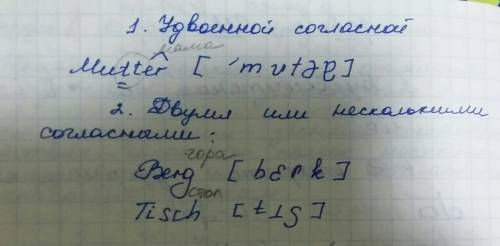 1. Удвоенной согласной
мама
Mutter [ ´mutəp]
2. Двумя или несколькими
согласными :
гора
Berg [bɛrk]
стол
Tisch [tɪʃ]